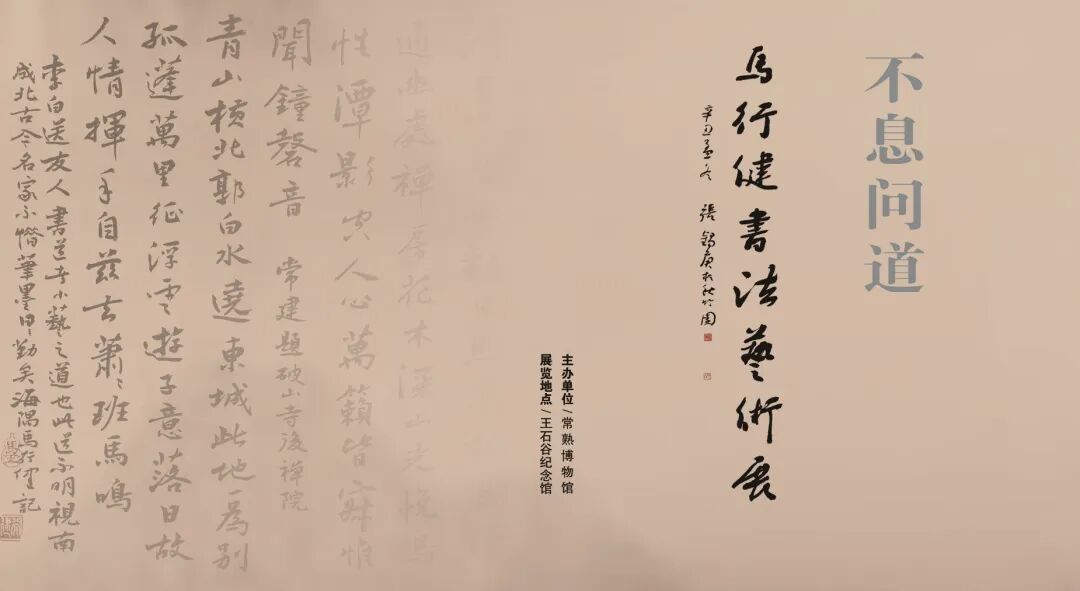 不息问道
馬行健書法藝術展
辛丑孟冬 張錫庚
主办单位/常熟博物馆
展览地点/王石谷纪念馆
通幽處禪房花木深山光悦鳥
性潭影空人心萬籟皆寂惟
聞鐘磬音 常建題破山寺後禪院
青山橫北郭白水遶東城此地為別
孤蓬萬里征浮雲遊子意落日故
人情揮手自茲去蕭〻班馬鳴
李白送友人 書道者小藝之道也此
古今名家小楷筆墨日〻勤矣海隅馬行健記